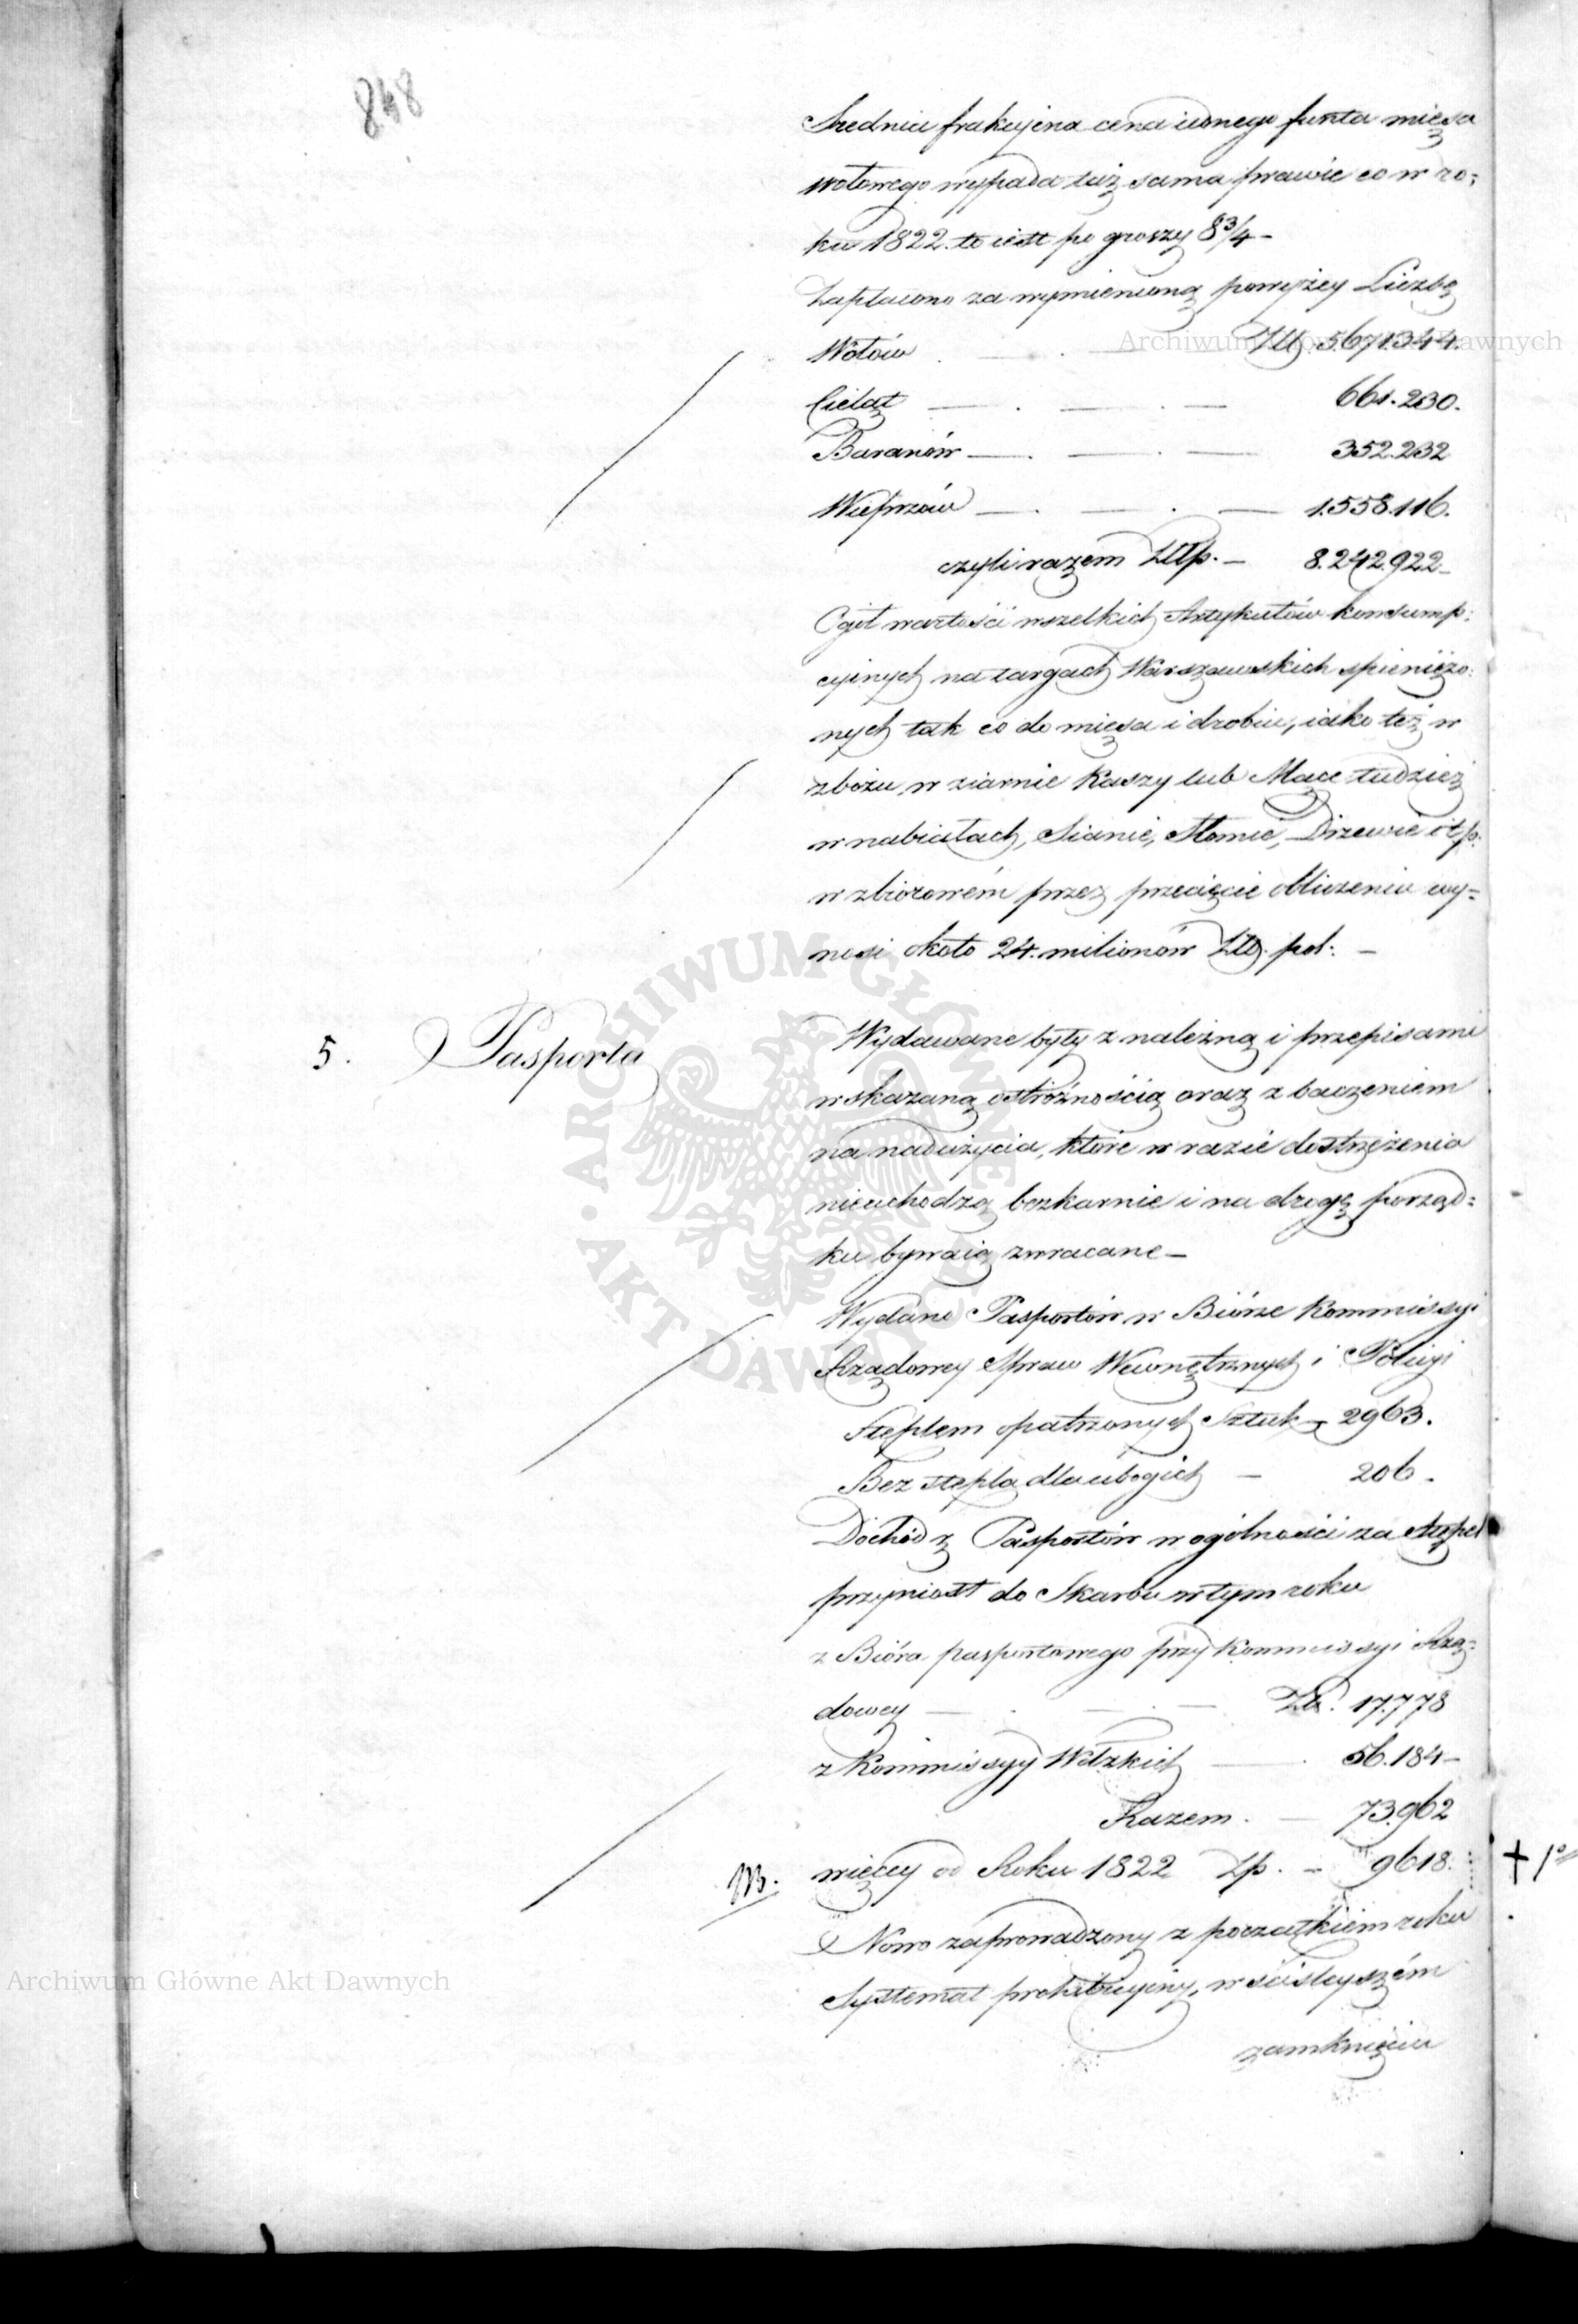 848
Srednia frakcyina cena iednego funta mięsa
wołowego wypada taż sama prawie co w ro:
ku 1822. to iest po groszy 8¾ –
Zapłacono za wymienioną powyżey Liczbę
Wołów Złł. 5.671.344.
Cieląt 661.230.
Baranów 352.232
Wieprzów 1.558.116.
czyli razem Złłp. – 8.242.922 –
Ogół wartości wszelkich Artykułów konsump:
cyinych na targach Warszawskich spieniężo:
nych tak co do mięsa i drobiu, iako też w
zbożu w ziarnie Kaszy lub Mące tudzież
w nabiałach, Sianie, Słomie, Drzewie itp.
w zbiorowém przez przecięcie obliczeniu wy=
nosi około 24. milionów Złł. pol: –
5. Pasporta
Wydawane były z należną i przepisami
wskazaną ostróżnością oraz z baczeniem
na nadużycia, które w razie dostrzeżenia
nieuchodzą bezkarnie i na drogę porząd=
ku bywaią zwracane –
Wydano Pasportów w Biórze Kommissyi
Rządowey Spraw Wewnętrznych i Policyi
Steplem opatrzonych Sztuk – 2963.
Bez stepla dla ubogich – 206 –
Dochód z Pasportów w ogólności za stępel
przyniósł do Skarbu w tym roku
z Bióra pasportowego przy Kommissyi Rzą=
dowey Zł. 17.778
z Kommissyy Wdzkich 56.184 –
Razem. – 73.962
więcey od Roku 1822 Zp. – 9618.
Nowo zaprowadzony z początkiem roku
Systemat prohibicyiny, w ściśleyszém
zamknięciu
Archiwum Główne Akt Dawnych
Archiwum Główne Akt Dawnych
ARCHIWUM GŁÓWNE AKT DAWNYCH